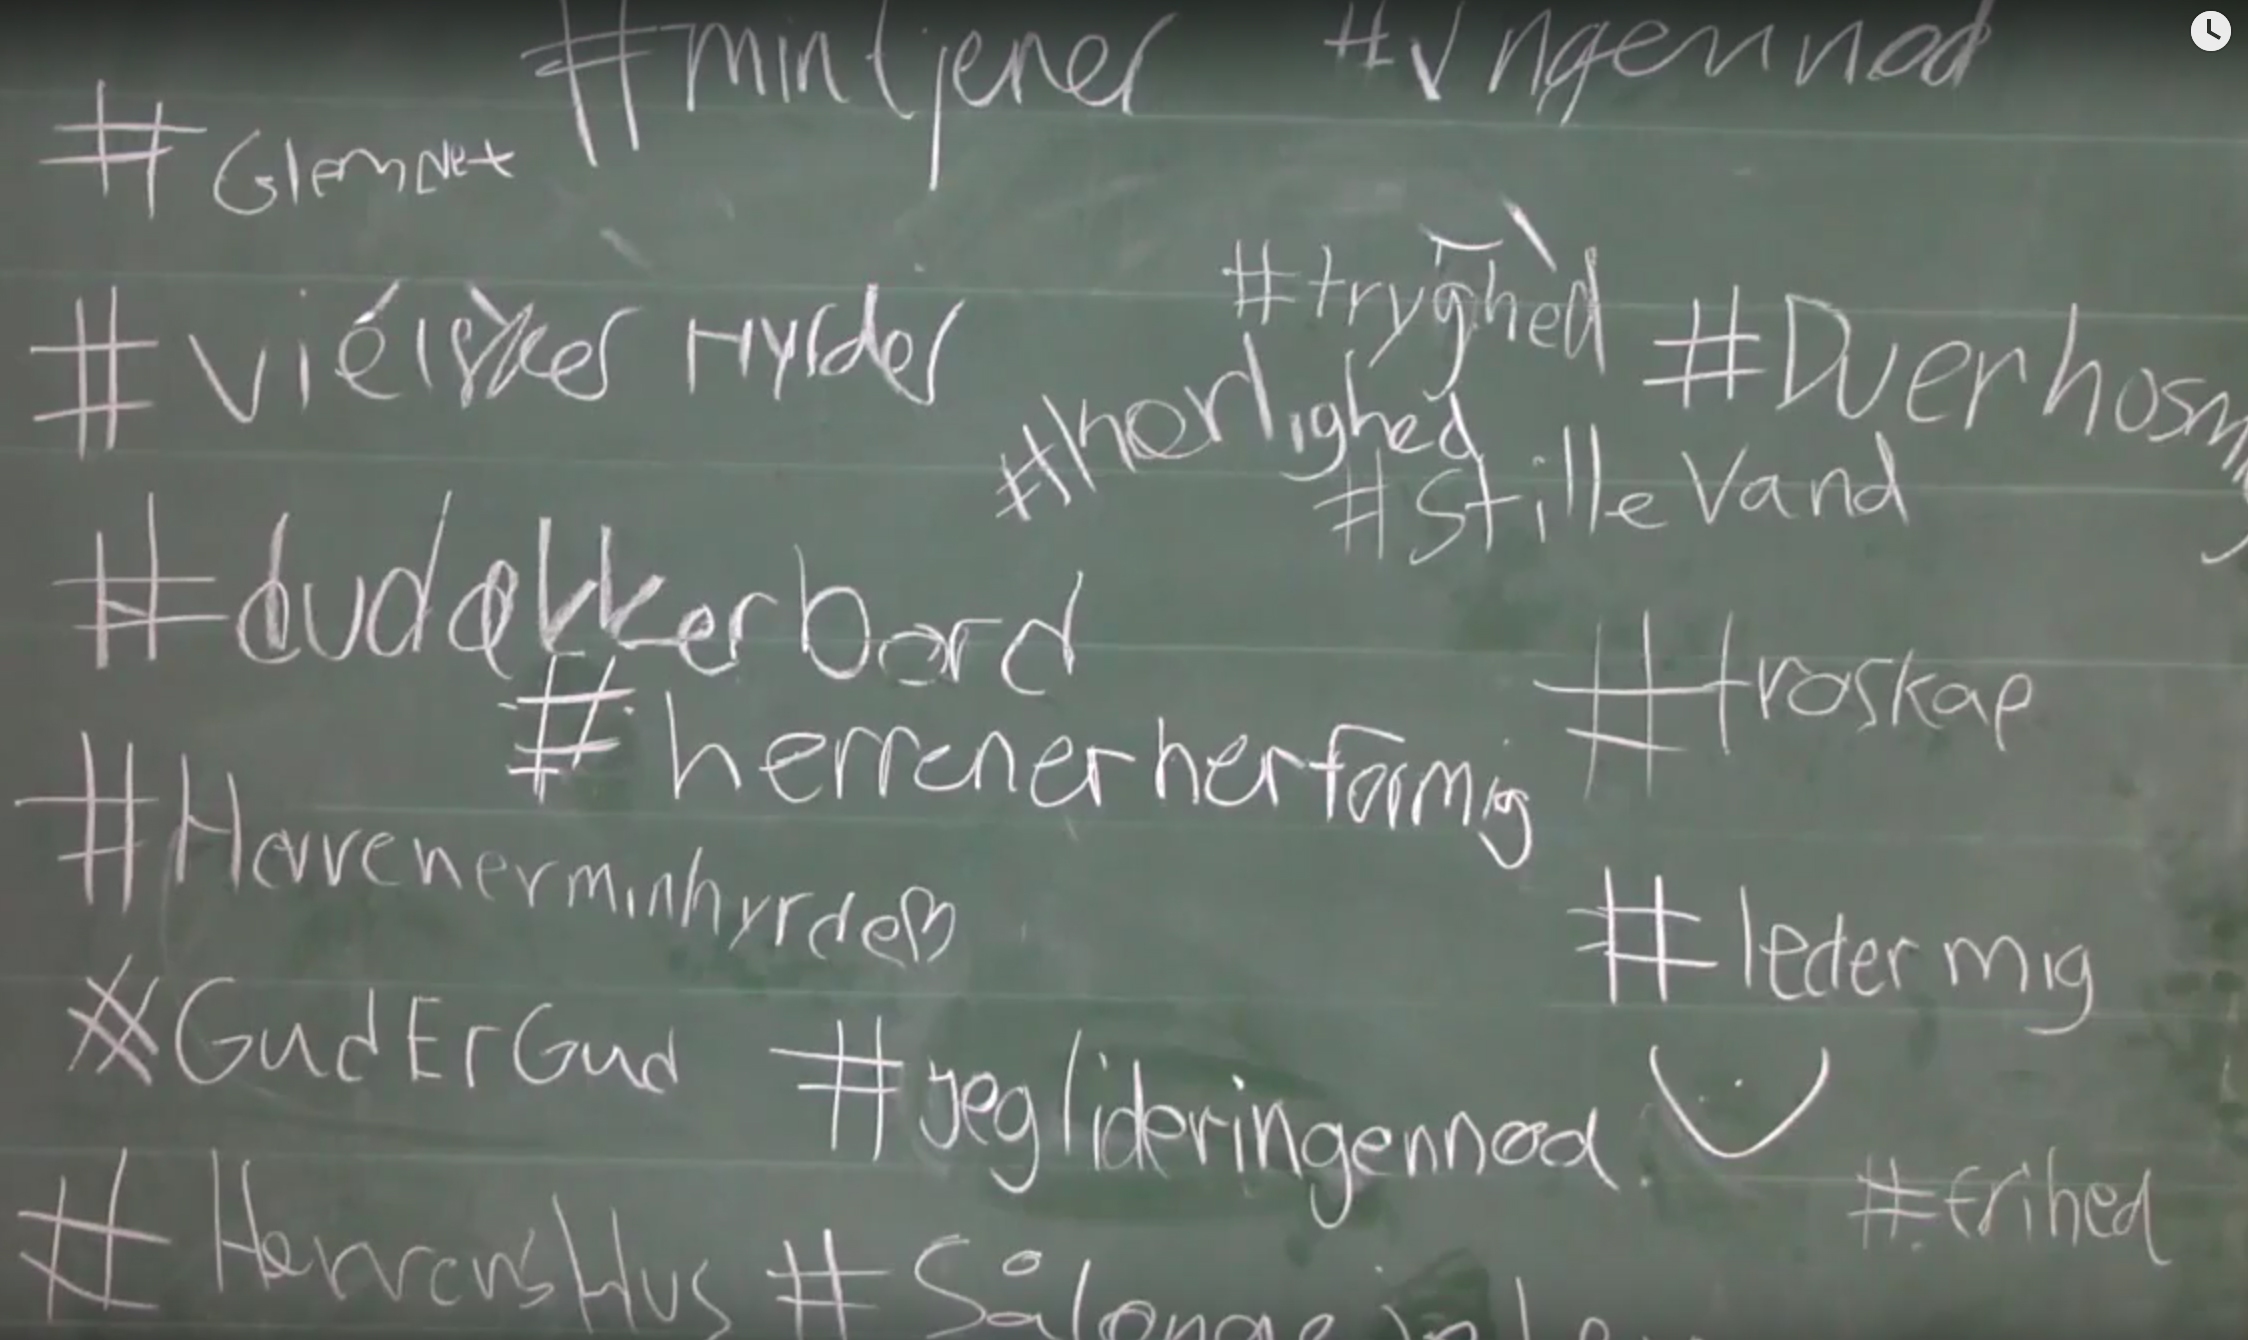 #mintjener #Ingennød
#GlemNet
#tryghed
#Vi elsker Hyrder #Duerhosm
#herlighed
#StilleVand
#dudækkerbord
#troskap
#herrenerherformig
#Herrenerminhyrde♡
#ledermig
#GudErGud #jeglideringennød
#frihed
#HerrensHus #Sålænge